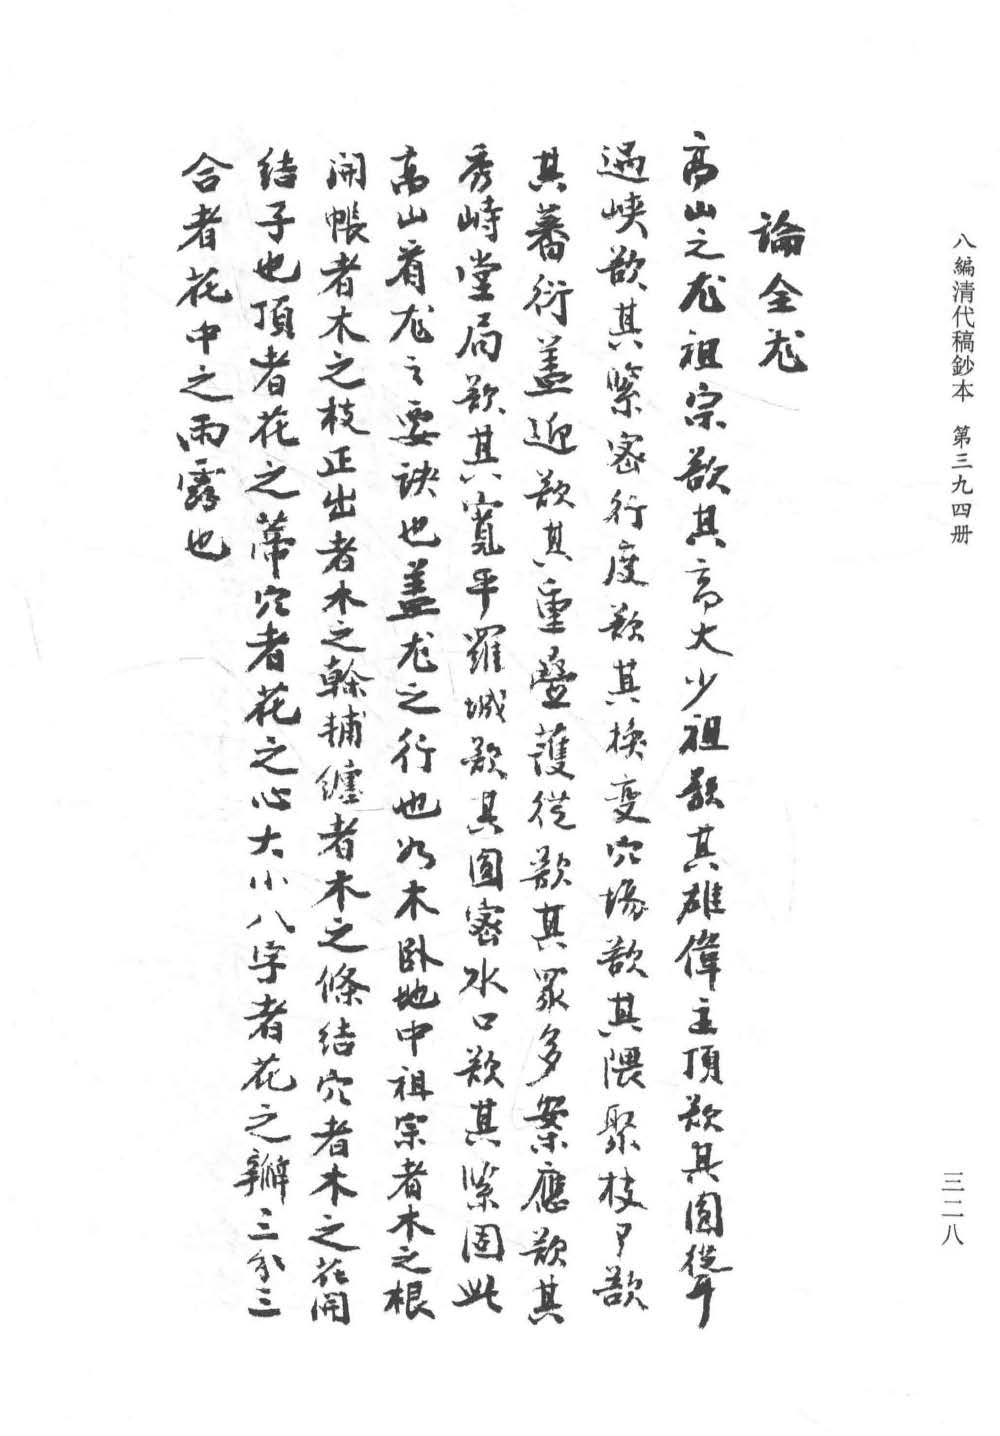 八編清代稿鈔本 第三九四册
三二八
論全龙
高山之龙祖宗欲其高大少祖欲其雄偉主頂欲其圓聳
過峽欲其紧密行度欲其換变穴場欲其隈聚枝甲欲
其蕃衍盖迎欲其重疊護從欲其眾多案應欲其
秀峙堂局欲其寬平羅城欲其圓密水口欲其紧固此
高山看龙之要訣也盖龙之行也如木卧地中祖宗者木之根
開帳者木之枝正出者木之榦輔纏者木之條結穴者木之花開
结子也頂者花之蒂穴者花之心大小八字者花之瓣三分三
合者花中之雨露也